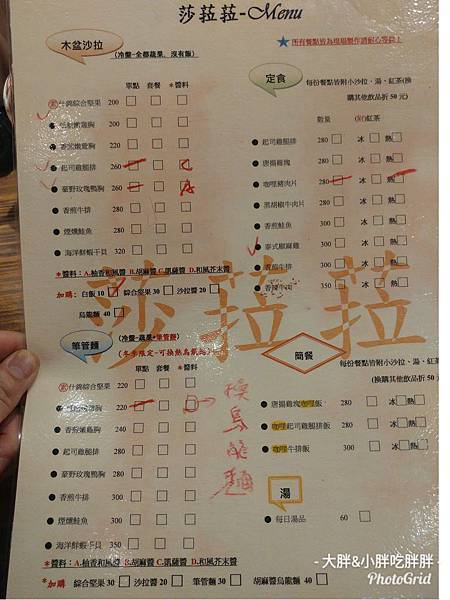 莎菈菈-Menu
★ 所有餐點皆為現場製作請耐心等候！
木盆沙拉 (冷盤-全部蔬果，沒有飯)
單點 套餐 *醬料
素什錦綜合堅果 200
200
香煎嫩雞胸 220
起司雞腿排 260
薰野玫瑰鴨胸 260
香煎牛排 280
煙燻鮭魚 280
海洋鮮蝦干貝 320
*醬料：A.柚香和風醬 B.胡麻醬 C.凱薩醬 D.和風芥末醬
加購：白飯 10 綜合堅果 30 沙拉醬 20
烏龍麵 40
定食 每份餐點皆附小沙拉、湯、紅茶(換
購其他飲品折 50 元)
數量 紅茶
起司雞腿排 280 冰 熱
唐揚雞塊 280 冰 熱
咖哩豬肉片 280 冰 熱
黑胡椒牛肉片 280 冰 熱
香煎鮭魚 300 冰 熱
泰式椒麻雞 300 冰 熱
香煎牛排 300 冰 熱
350 冰 熱
莎菈菈
筆管麵 (冷盤-蔬果+筆管麵)
(冬季限定-可換熱烏龍麵)
單點 套餐 *醬料
素什錦綜合堅果 220
220
香煎嫩雞胸 240
起司雞腿排 280
薰野玫瑰鴨胸 280
香煎牛排 300
煙燻鮭魚 300
海洋鮮蝦干貝 350
換烏龍麵
*醬料：A.柚香和風醬 B.胡麻醬 C.凱薩醬 D.和風芥末醬
*加購 綜合堅果 30 沙拉醬 20 筆管麵 30 胡麻醬烏龍麵 40
簡餐 每份餐點皆附小沙拉、湯、紅茶
(換購其他飲品折 50
唐揚雞塊咖哩飯 280 冰 熱
咖哩起司雞腿排飯 280 冰 熱
咖哩牛排飯 300 冰 熱
湯
每日湯品 60
- 大胖&小胖吃胖胖 -
PhotoGrid